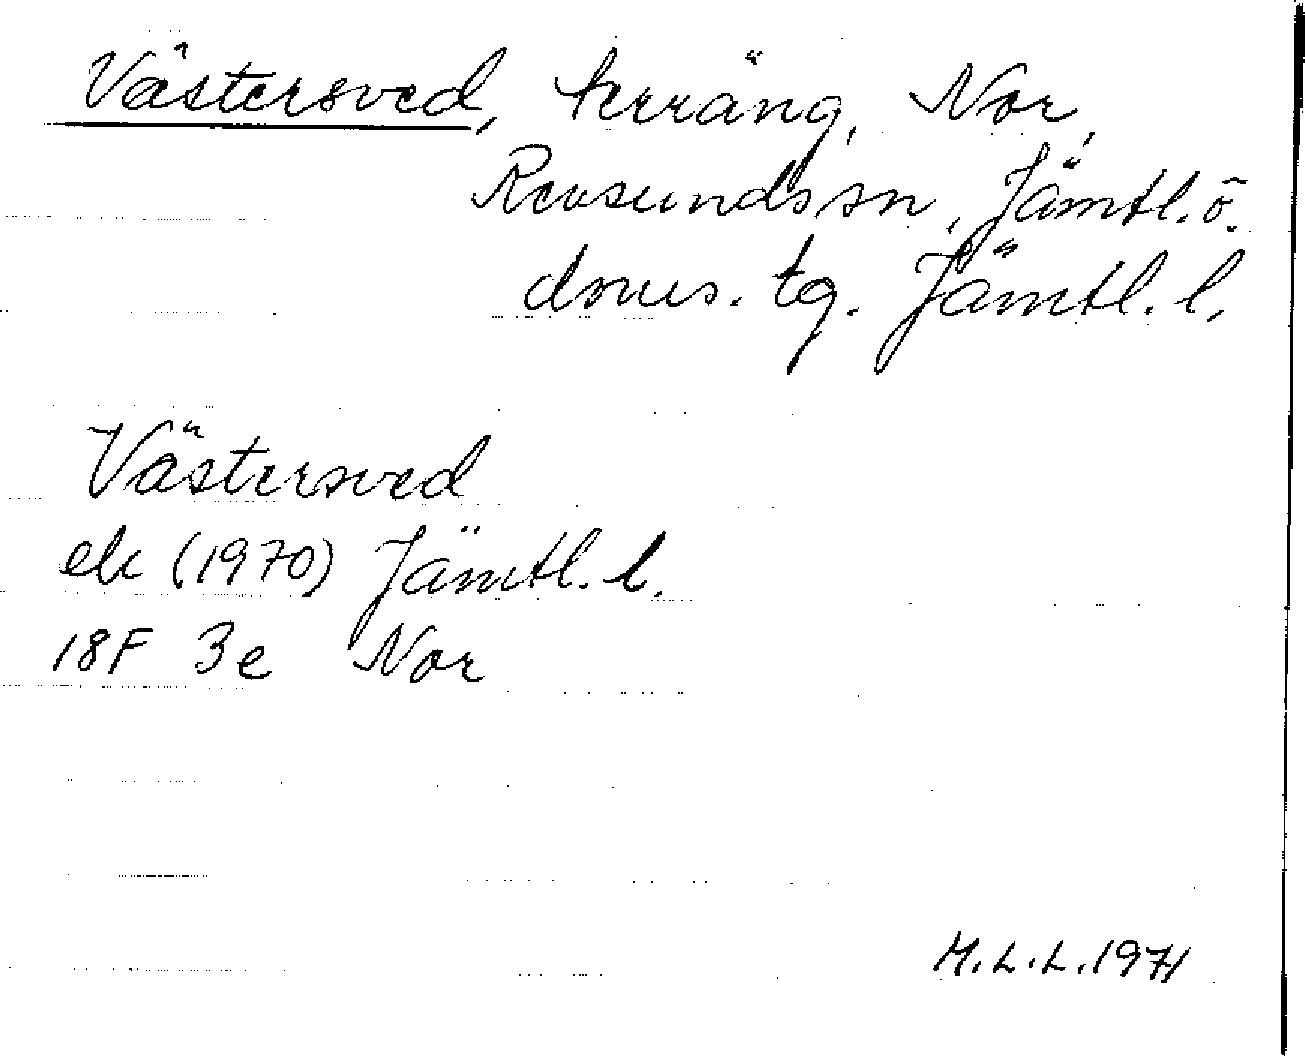 Västersved, terräng, Nor,
Revsunds sn, Jämtl. ö.
dms. tg. Jämtl. l.
Västersved
ek (1970) Jämtl. l.
18F 3e Nor
M.L.L. 1971